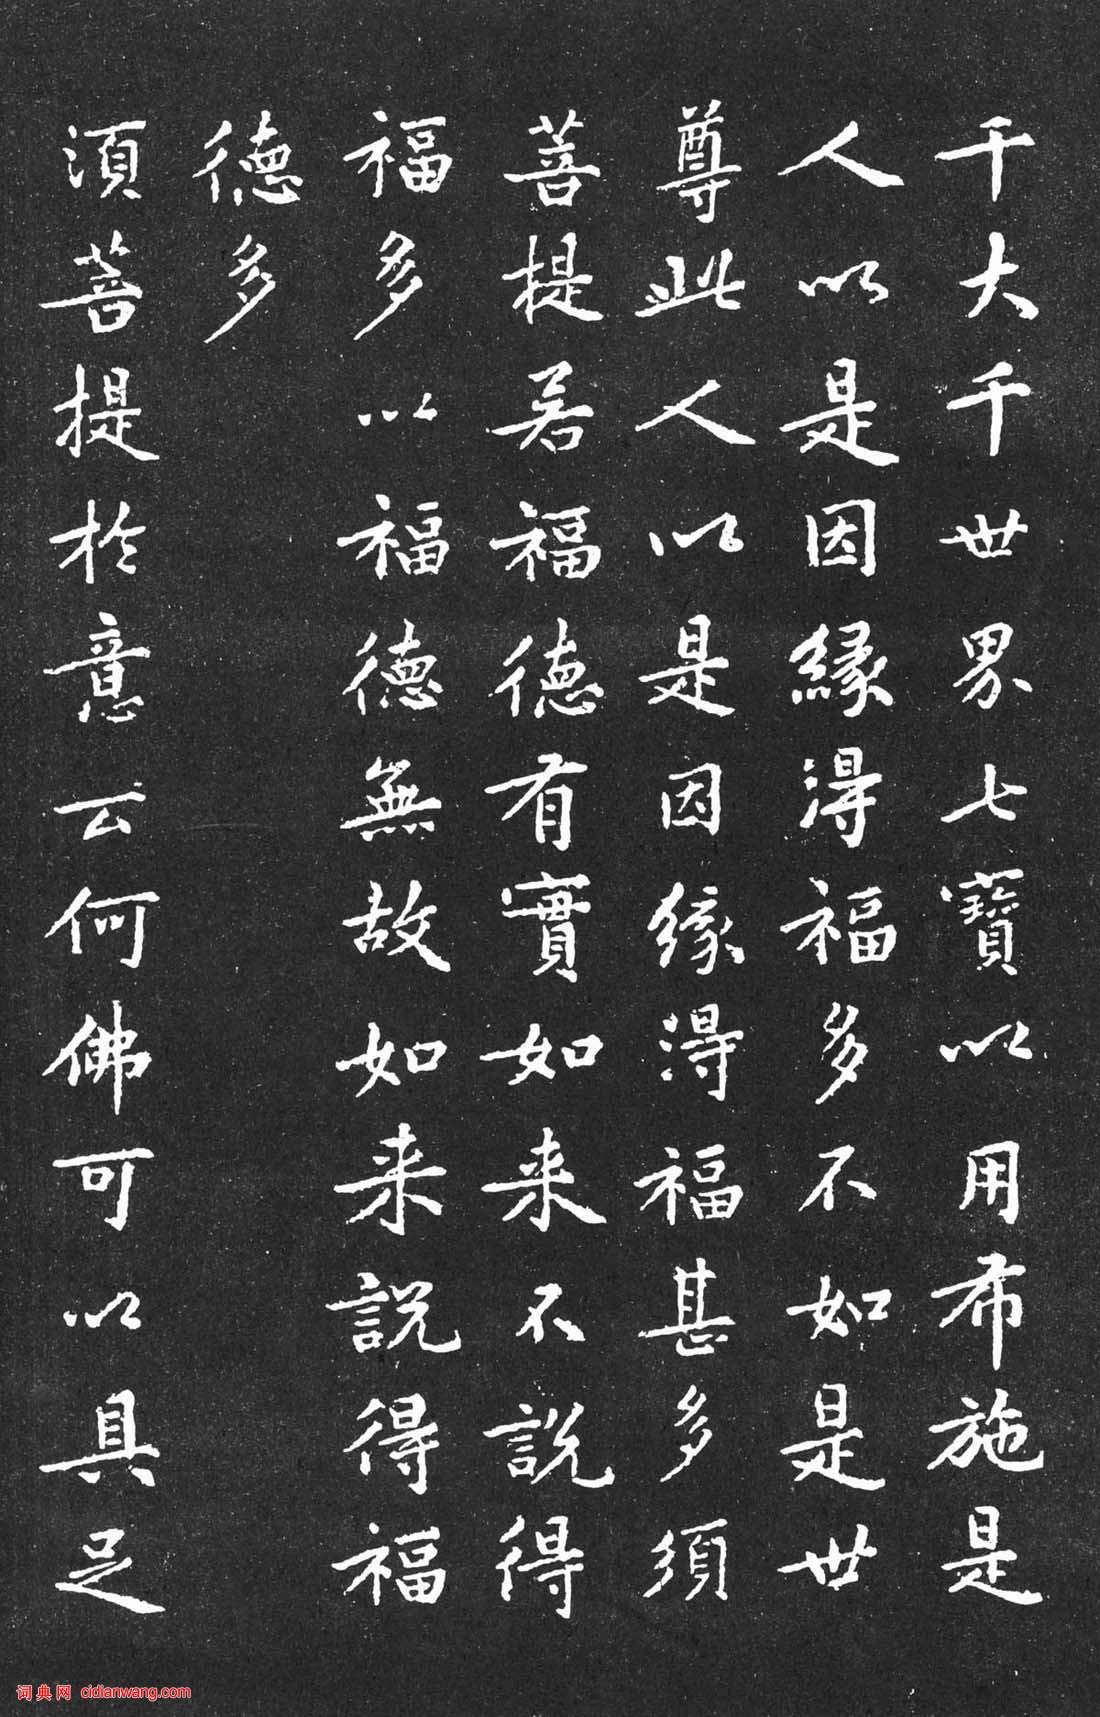 千大千世界七寶以用布施是
人以是因緣得福多不如是世
尊此人以是因緣得福甚多須
菩提若福德有實如來不說得
福多以福德無故如来説得福
德多
須菩提於意云何佛可以具足
词典网 cidianwang.com